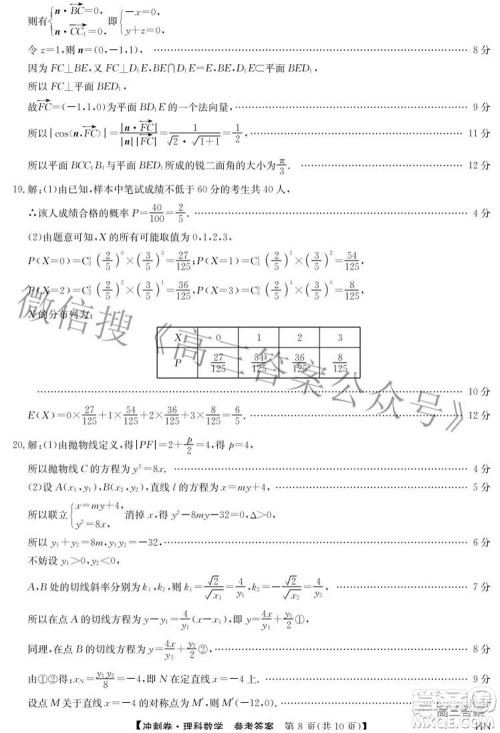 则有{n·BC=0, n·CC₁=0, 即{-x=0, y+z=0,
令 z=1,则 n=(0,-1,1), 8 分
因为 FC⊥BE,又 FC⊥D₁E,BE∩D₁E=E,BE,D₁E⊂平面 BED₁,
所以 FC⊥平面 BED₁,
故FC=(-1,1,0)为平面 BD₁E 的一个法向量, 9 分
所以|cos⟨n,FC⟩|=|n·FC|/|n||FC|=1/(√2·√(1+1))=1/2, 11 分
所以平面 BCC₁B₁与平面 BED₁所成的锐二面角的大小为π/3. 12 分
19.解:(1)由已知,样本中笔试成绩不低于 60 分的考生共 40 人,
∴该人成绩合格的概率 P=40/100=2/5. 4 分
(2)由题意可知,X 的所有可能取值为 0,1,2,3,
P(X=0)=C₃⁰(2/5)⁰×(3/5)³=27/125;P(X=1)=C₃¹(2/5)¹×(3/5)²=54/125,
P(X=2)=C₃²(2/5)²×(3/5)¹=36/125,P(X=3)=C₃³(2/5)³×(3/5)⁰=8/125,
X 的分布列为:
X 0 1 2 3
P 27/125 54/125 36/125 8/125
10 分
E(X)=0×27/125+1×54/125+2×36/125+3×8/125=6/5. 12 分
20.解:(1)由抛物线定义,得|PF|=2+p/2=4,得 p=4,
所以抛物线 C 的方程为 y²=8x. 4 分
(2)设 A(x₁,y₁),B(x₂,y₂),直线 l 的方程为 x=my+4,
所以联立{x=my+4, y²=8x, 消掉 x,得 y²-8my-32=0,Δ>0,
所以 y₁+y₂=8m,y₁y₂=-32, 6 分
不妨设 y₁>0,y₂<0,
A,B 处的切线斜率分别为 k₁,k₂,则 k₁=√2/√x₁,k₂=-√2/√x₂, 7 分
所以在点 A 的切线方程为 y-y₁=4/y₁(x-x₁),即 y=4x/y₁+y₁/2①,
同理,在点 B 的切线方程为 y=4x/y₂+y₂/2②,
由①②得:x_N=y₁y₂/8=-4, 8 分
设点 M 关于直线的对称点为 M′,则 M′ 9 分
【冲刺卷·理科数学 参考答案 第 8 页(共 10 页)】
微信搜《高三答案公众号》